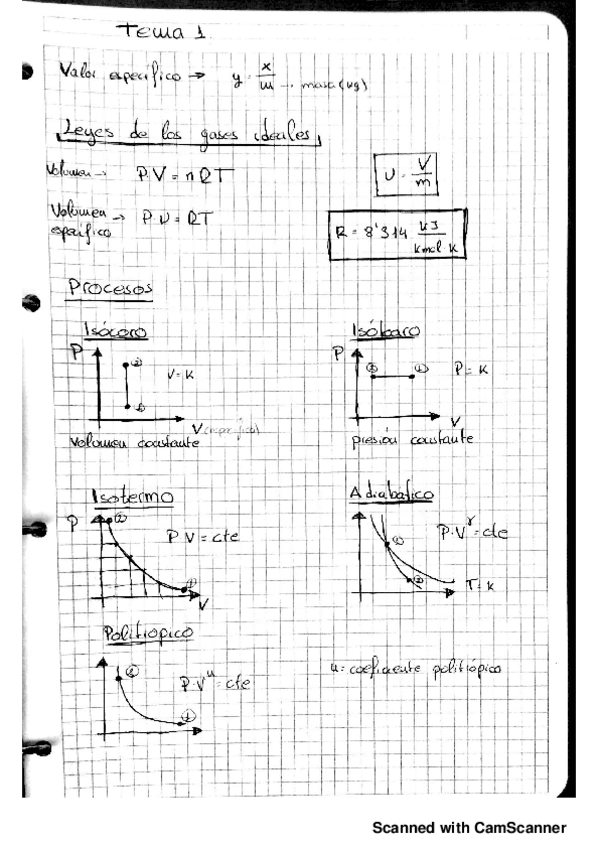 Tema 1
Valor específico → y = x/m ... masa (kg)
Leyes de los gases ideales
Volumen → P.V = nRT
υ = V/m
Volumen específico → P.υ = RT
R = 8'314 kJ/kmol K
Procesos
Isócoro
Isóbaro
P
②
V = K
①
V (específico)
P
②
①
P = K
V
Volumen constante
presión constante
Isotermo
Adiabático
P
②
P V = cte
①
V
P.V^γ = cte
①
②
T = K
Politrópico
②
P.V^n = cte
①
n = coeficiente politrópico
Scanned with CamScanner